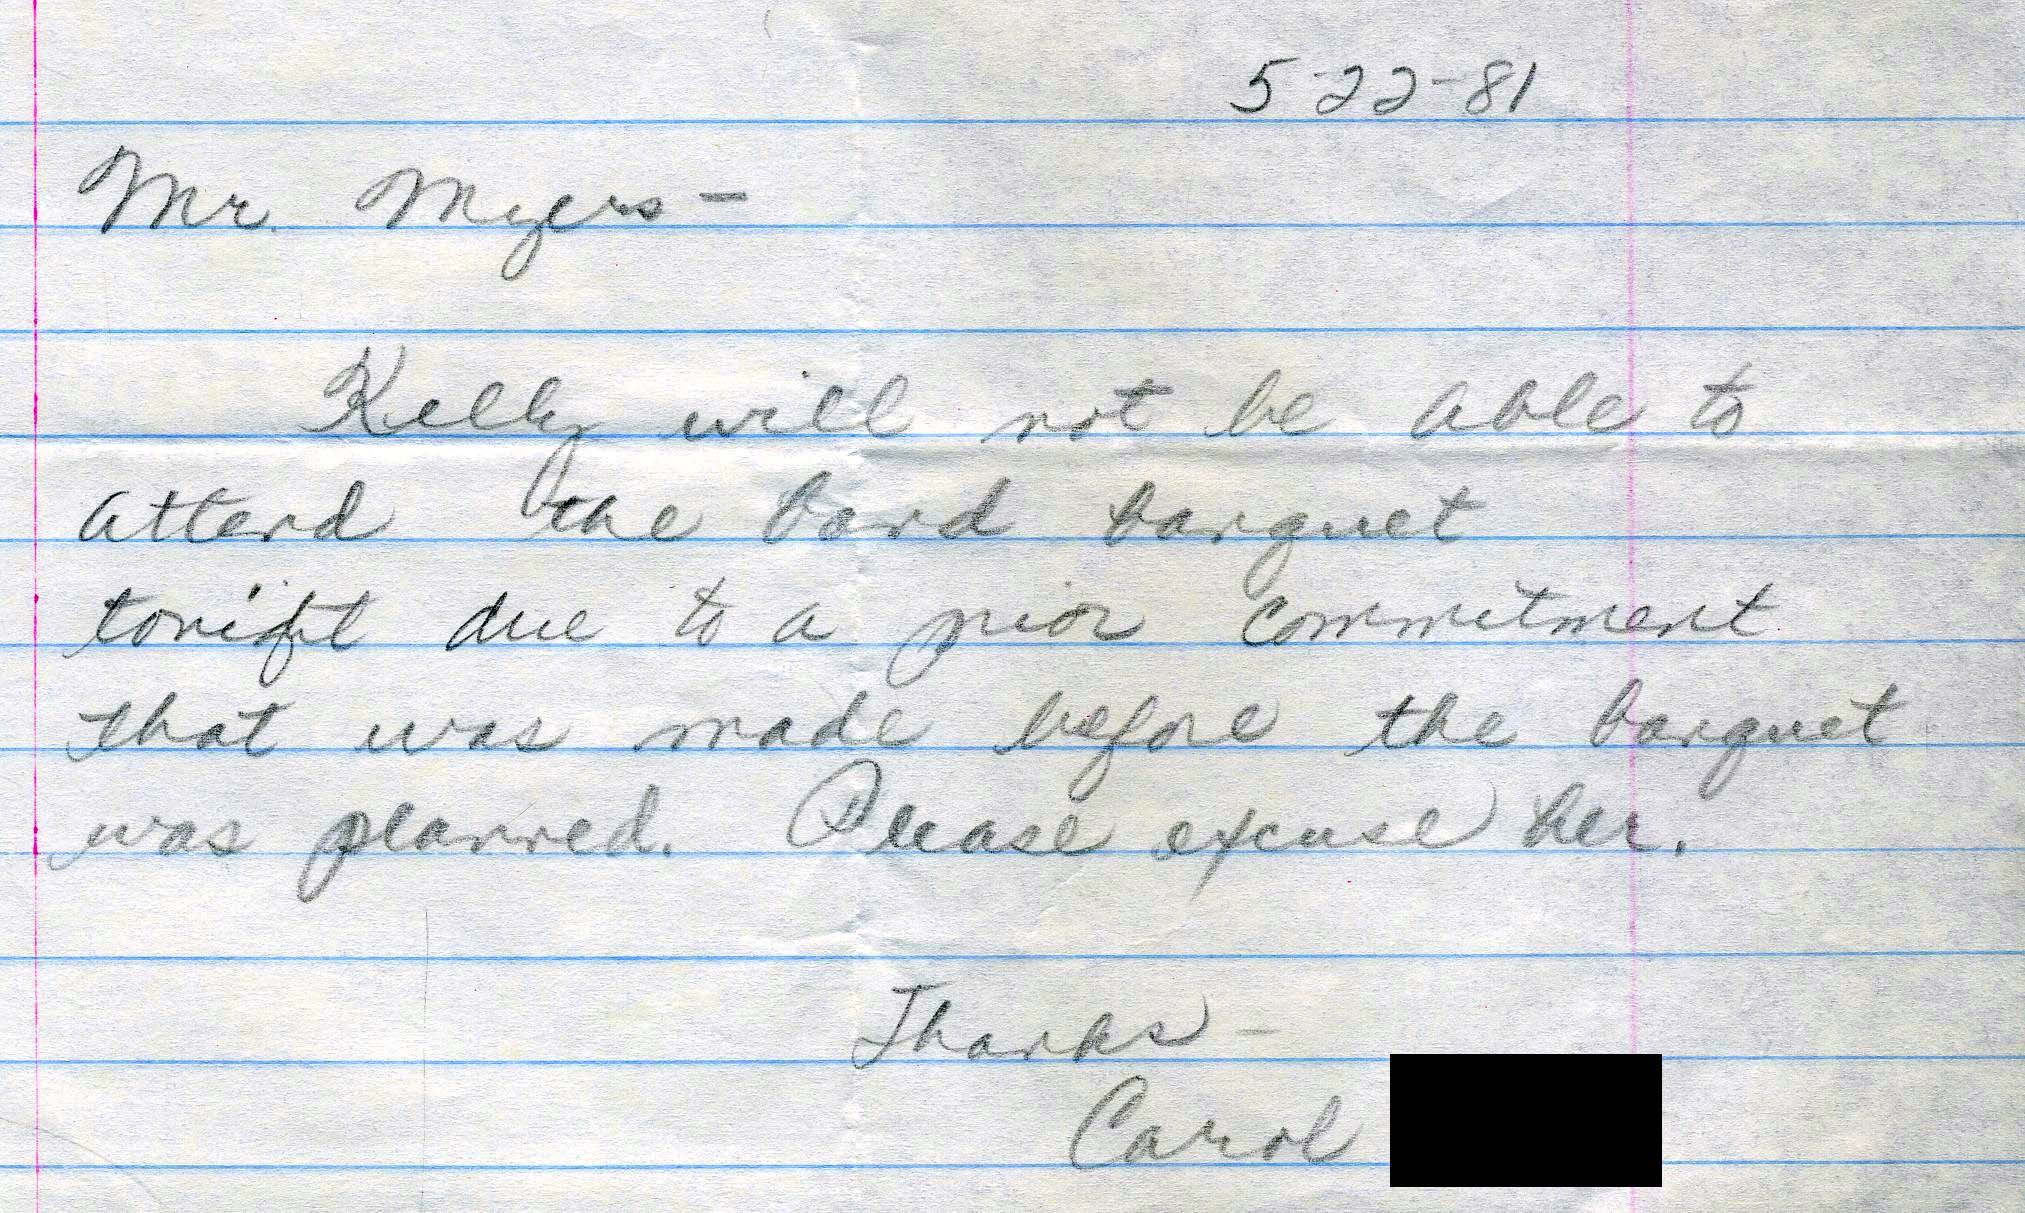 5-22-81
Mr. Myers -
Kelly will not be able to
attend the band banquet
tonight due to a prior commitment
that was made before the banquet
was planned. Please excuse her.
Thanks -
Carol